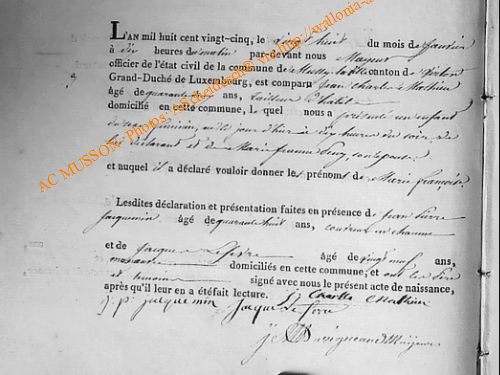 L'AN mil huit cent vingt-cinq, le dix huit du mois de Janvier
à dix heures du matin par-devant nous Mayeur
officier de l'état civil de la commune de Mussy la ville canton de Virton
Grand-Duché de Luxembourg, est comparu Jean Charles Mathieu
âgé de quarante ans, tailleur d'habit
domicilié en cette commune, lequel nous a présenté un enfant
du sexe féminin, né le jour d'hier à dix heures du soir, de
lui déclarant et de Marie Jeanne son épouse
et auquel il a déclaré vouloir donner les prénoms de Marie françoise
Lesdites déclaration et présentation faites en présence de Jean Pierre
Jacquemin âgé de quarante huit ans, couvreur en chaume
et de Jacque Lefevre âgé de vingt neuf ans,
domiciliés en cette commune, et ont les père
et témoins signé avec nous le présent acte de naissance,
après qu'il leur en a été fait lecture. J Charles Mathieu
j. p. jacquemin Jacque
AC MUSSON, Photos: AScheidach@ via http://wallonia-a